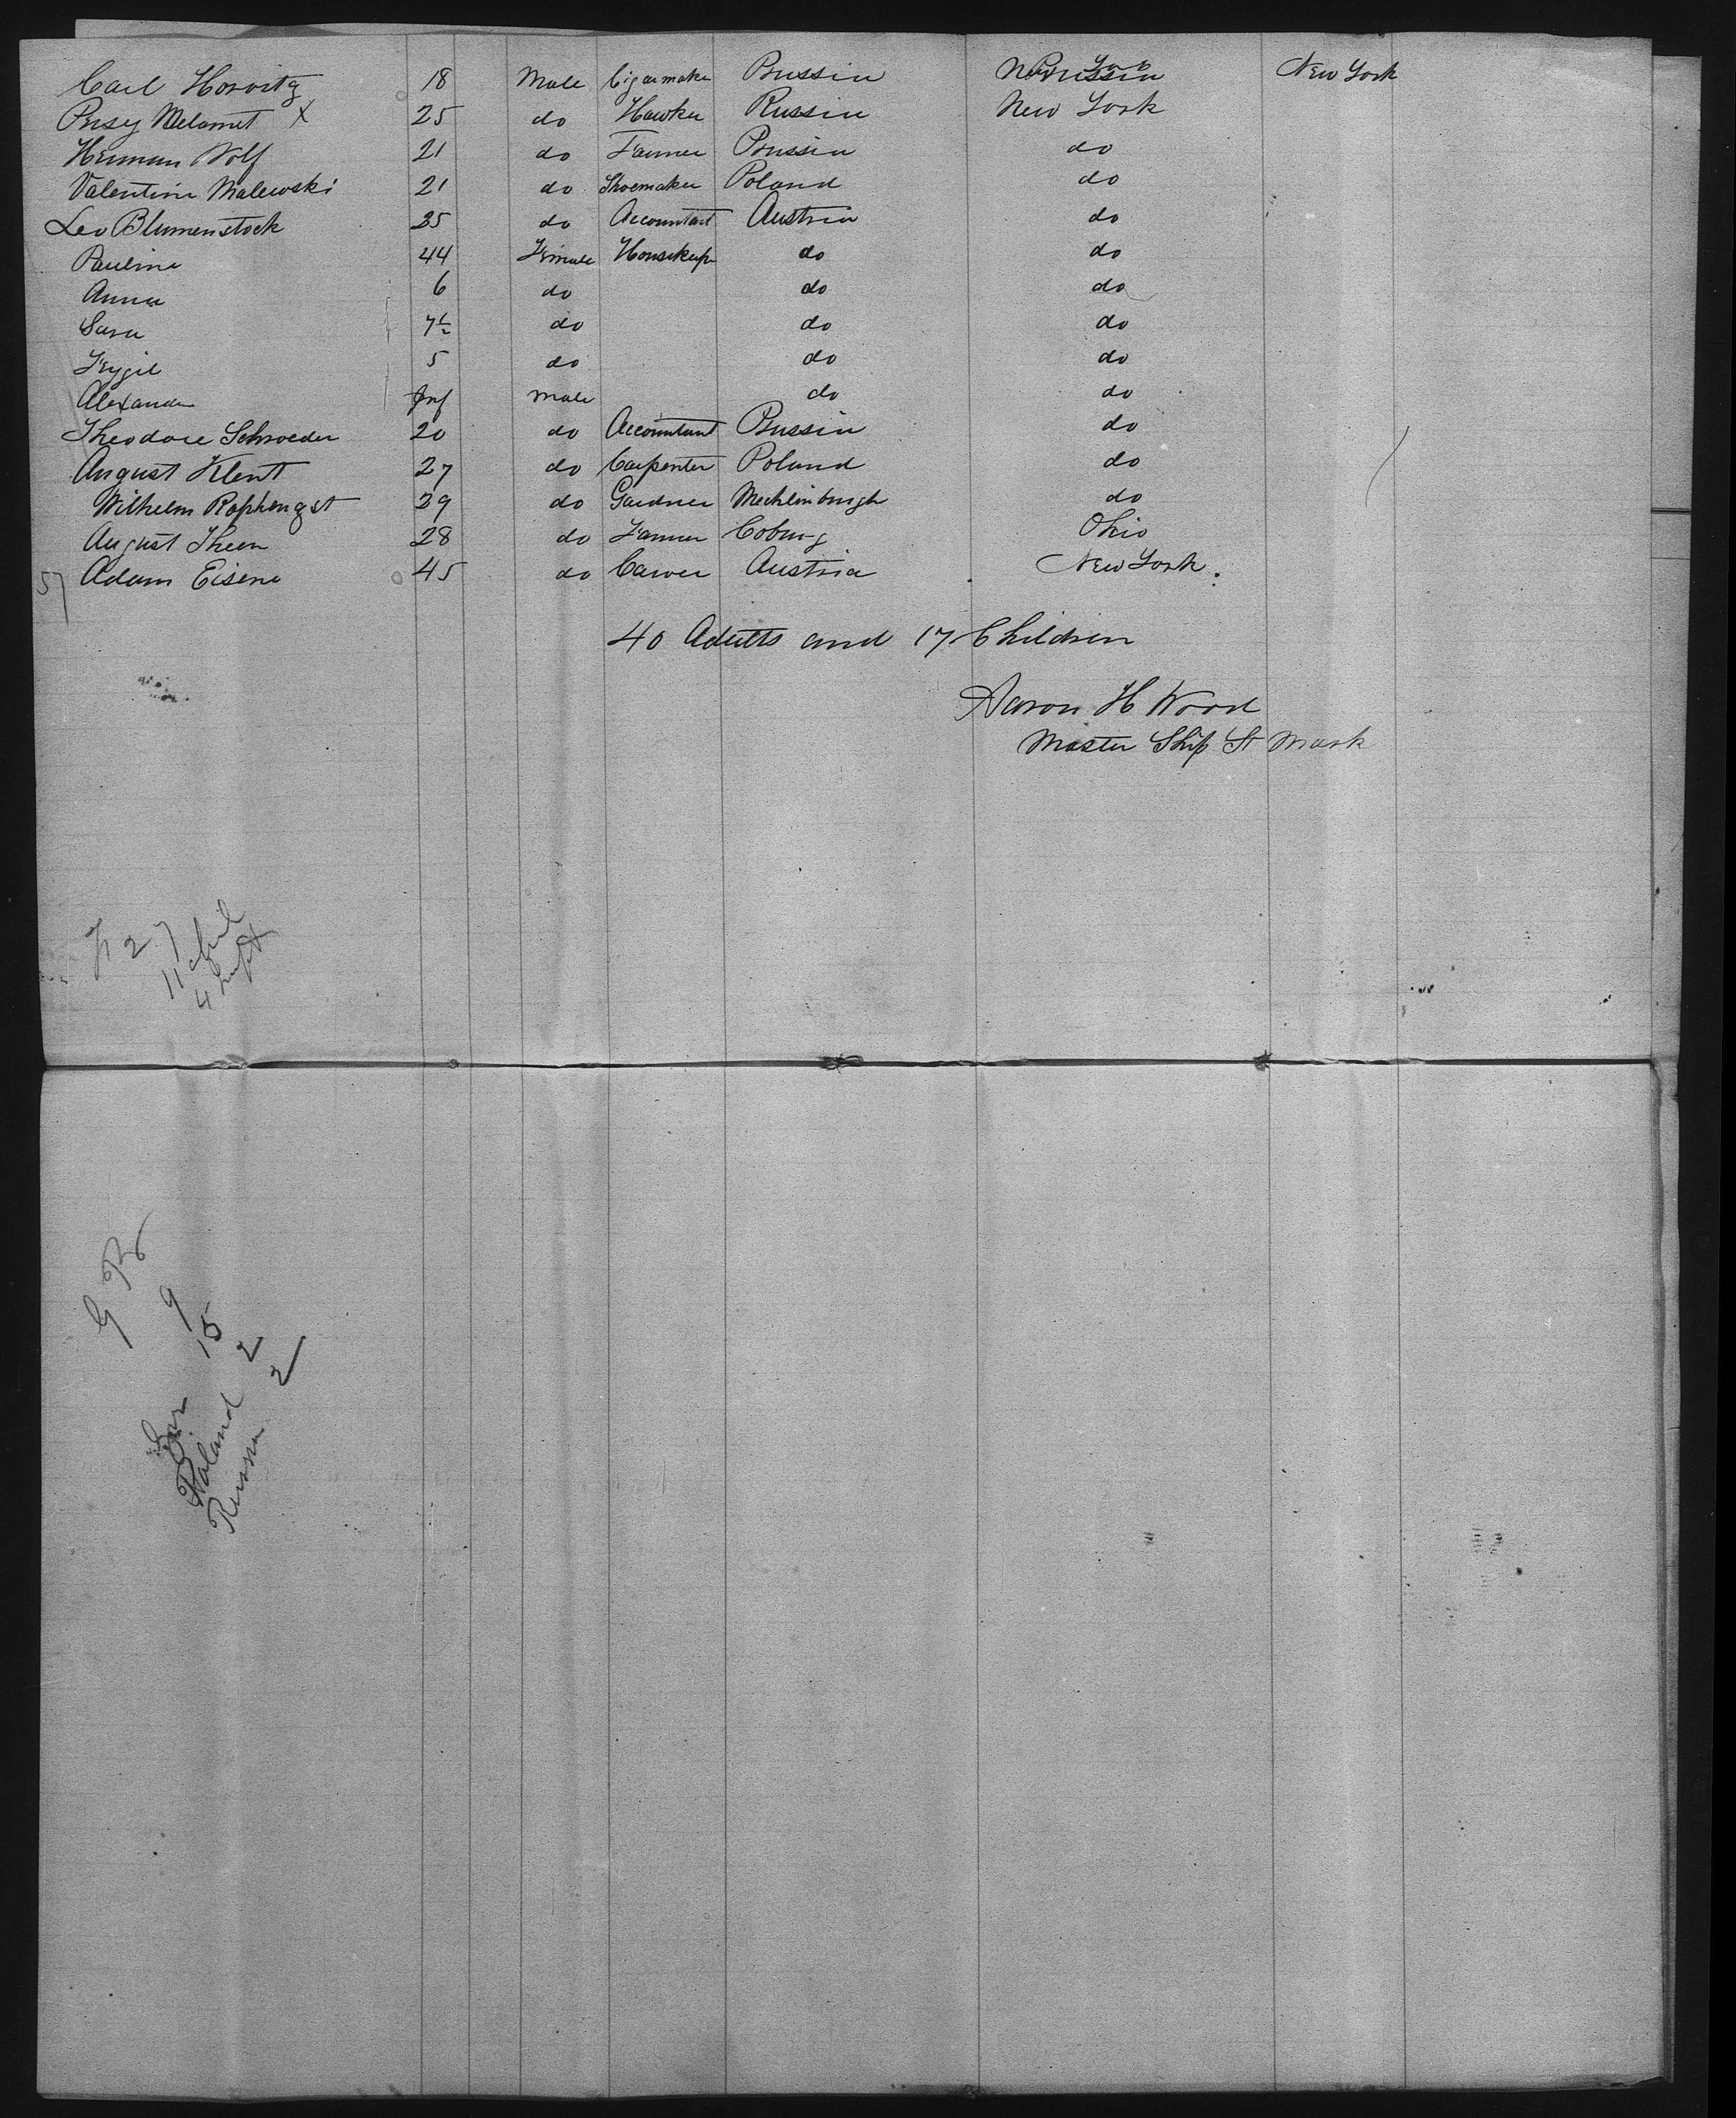 Carl Horvitz 18 Male Cigarmaker Prussia New York New York
Persy Melamet X 25 do Hawker Russia New York
Herman Wolf 21 do Farmer Prussia do
Valentin Malewski 21 do Shoemaker Poland do
Leo Blumenstock 25 do Accountant Austria do
Pauline 44 Female Housekeepr do do
Anna 6 do do do
Sara 7½ do do do
Feygil 5 do do do
Alexander Inf Male do do
Theodore Schroeder 20 do Accountant Prussia do
August Klent 27 do Carpenter Poland do
Wilhelm Raphengst 29 do Gardner Mecklinburgh do
August Theen 28 do Farmer Coburg Ohio
57 Adam Eisene 45 do Carver Austria New York.
40 Adults and 17 Children
Aaron H Wood
Master Ship St Mark
27
11 chil
4 inft
G Pr
9
15
Poland 2
Russia 2